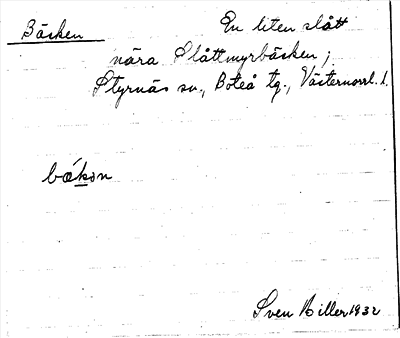 Bäcken
En liten slått
nära Slåttmyrbäcken;
Styrnäs sn., Boteå tg., Västernorrl. l.
bækon
Sven Hiller 1932